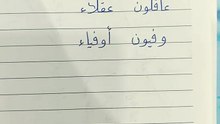 عاقلون عقلاء
وفيون أوفياء